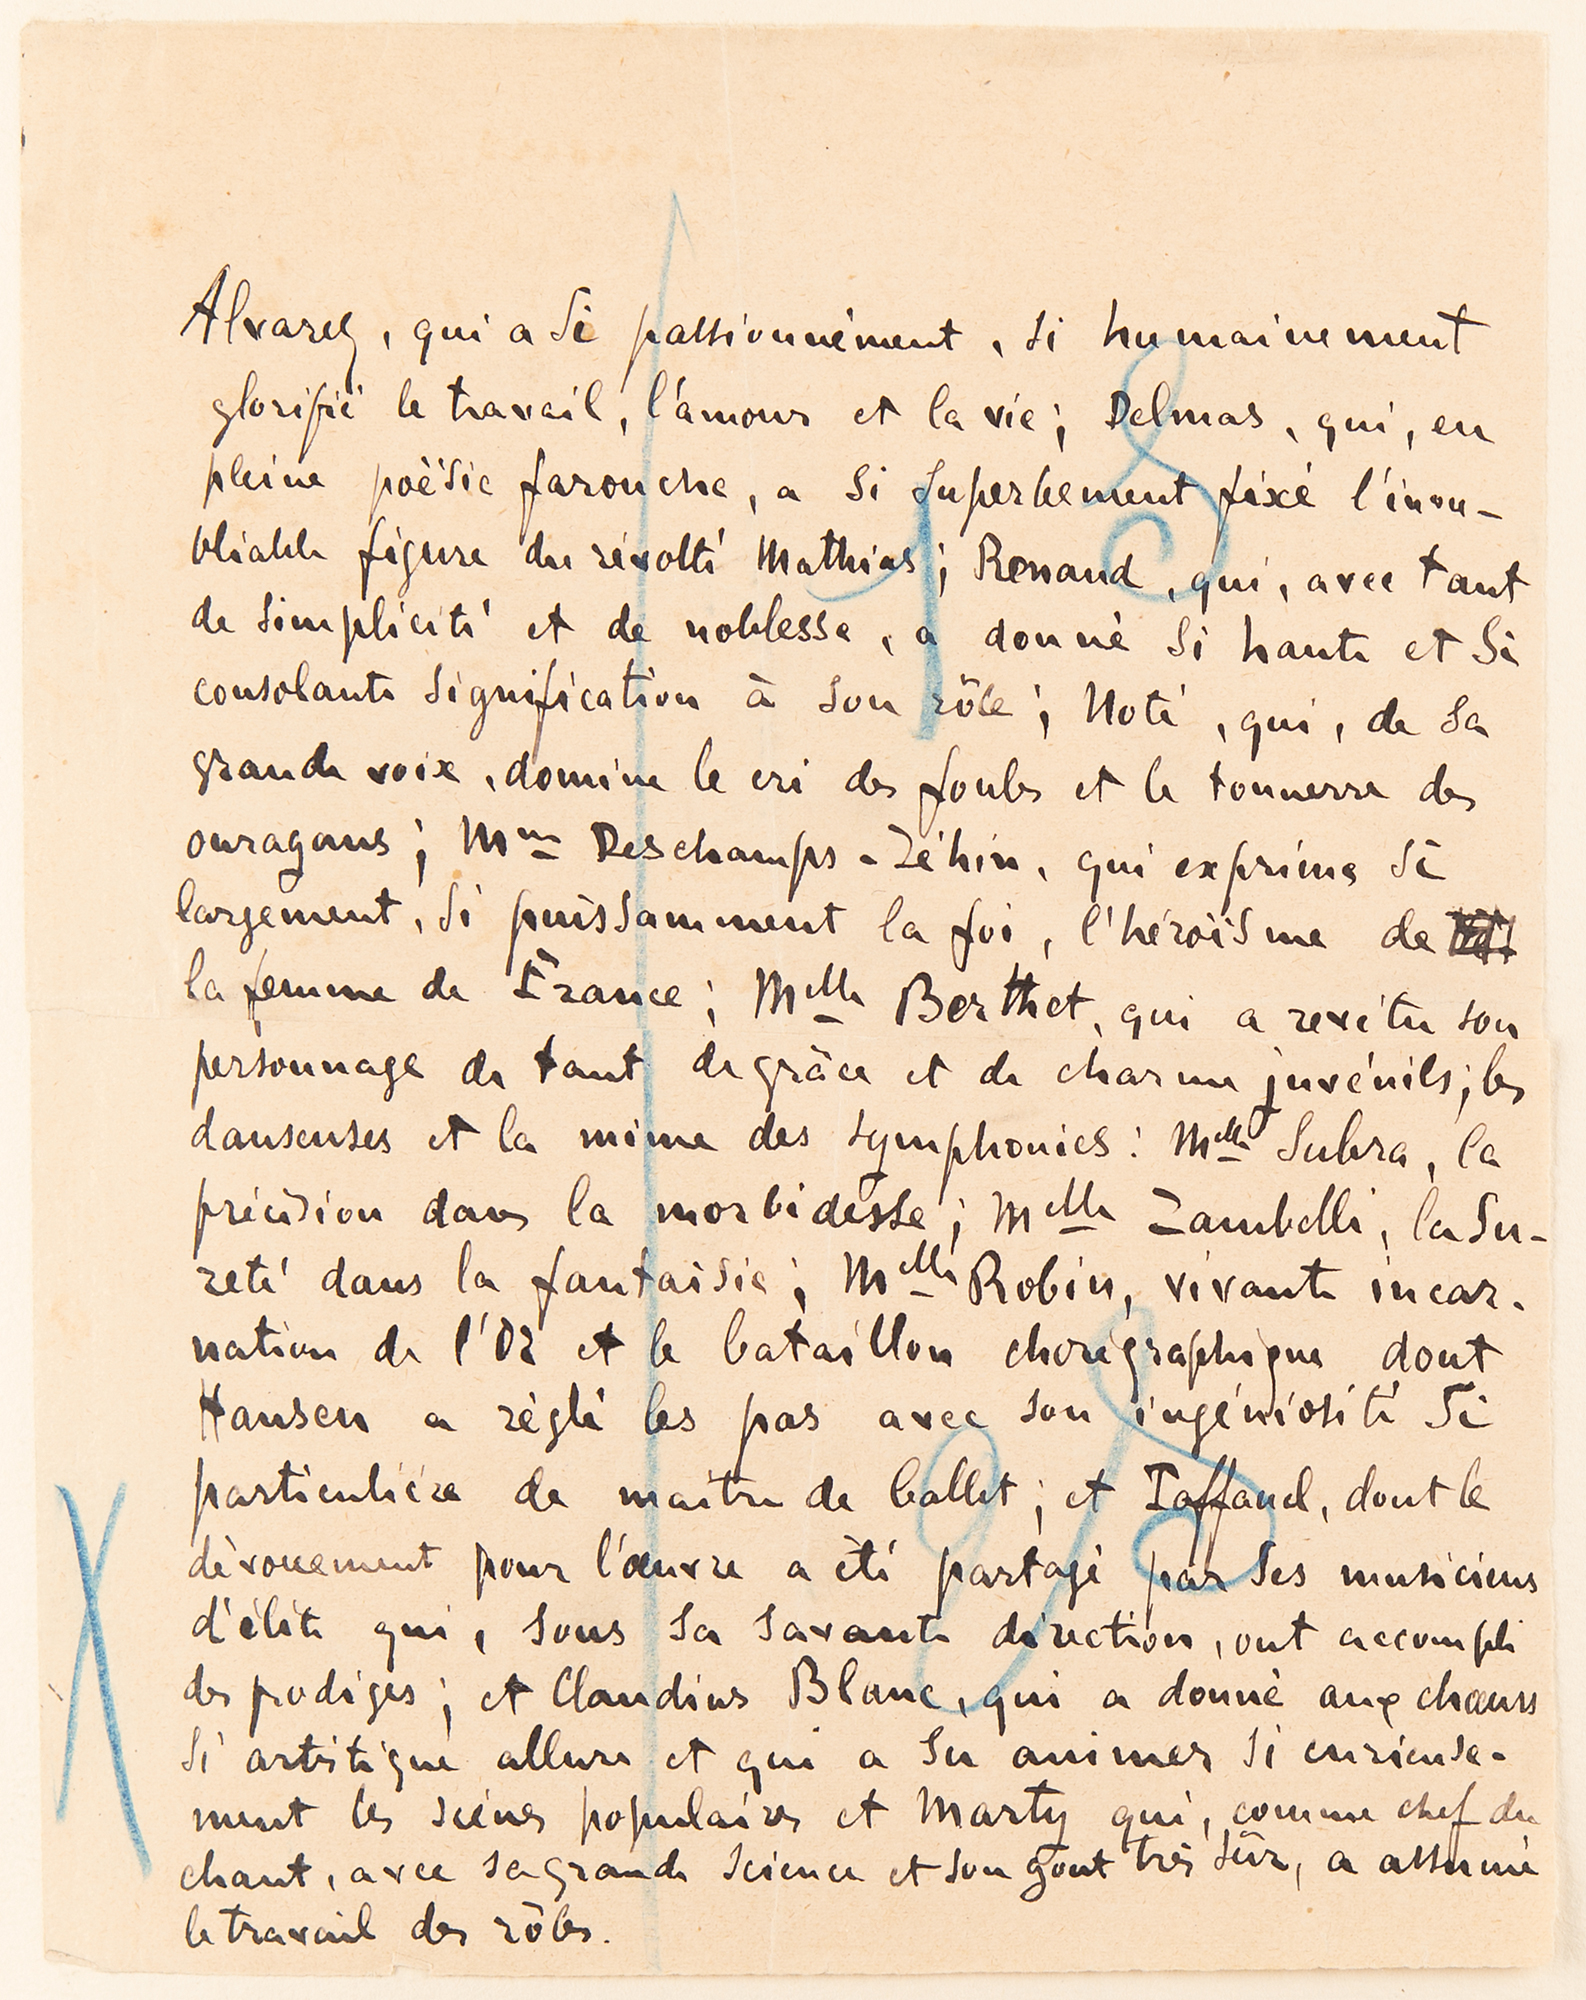 Alvarez, qui a si passionnément, si humainement
glorifié le travail, l'amour et la vie; Delmas, qui, en
pleine poësie farouche, a si superbement fixé l'inou-
bliable figure du révolté Mathias; Renaud, qui, avec tant
de simplicité et de noblesse, a donné si haute et si
consolante signification à son rôle; Noté, qui, de sa
grande voix, domine le cri des foules et le tonnerre des
ouragans; Mme Deschamps-Jéhin, qui exprime si
largement, si puissamment la foi, l'héroïsme de
la femme de France; Melle Berthet, qui a revêtu son
personnage de tant de grâce et de charme juvénils; les
danseuses et la mime des symphonies: Melle Subra, la
précision dans la morbidesse; Melle Zambelli, la su-
reté dans la fantaisie; Melle Robin, vivante incar-
nation de l'Or et le bataillon chorégraphique dont
Hansen a réglé les pas avec son ingéniosité si
particulière de maître de ballet; et Taffanel, dont le
dévouement pour l'œuvre a été partagé par ses musiciens
d'élite qui, sous sa savante direction, ont accompli
des prodiges; et Claudius Blanc, qui a donné aux chœurs
si artistique allure et qui a su animer si curieuse-
ment les scènes populaires et Marty qui, comme chef du
chant, avec sa grande science et son goût très sûr, a assumé
le travail des rôles.